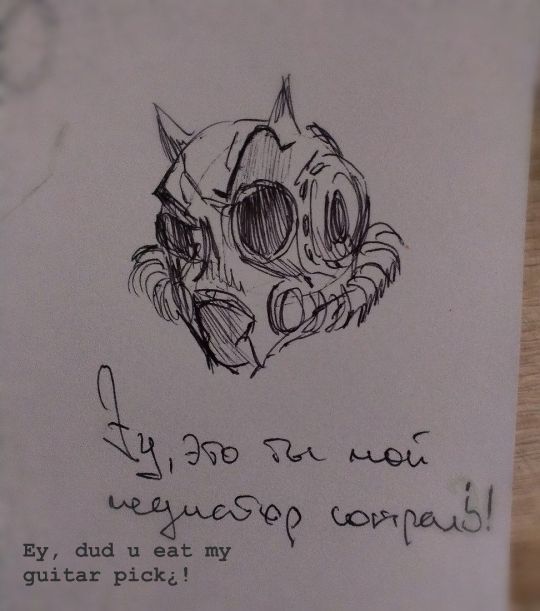 Эу, это ты мой
медиатор сожрал¿!
Ey, dud u eat my
guitar pick¿!